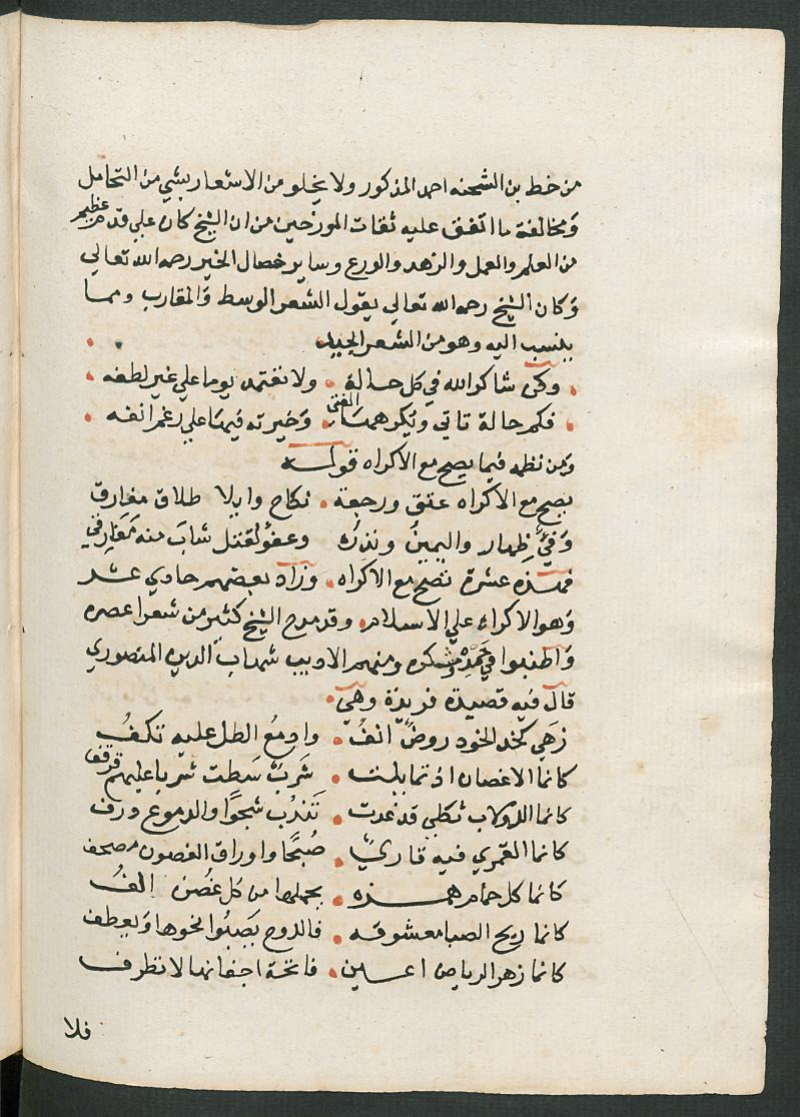 من خط بن الشحنه احمد المذكور ولا يخلو من الاشعار بشي من التحامل
ومخالفة ما اتفق عليه ثقات المورخين من ان الشيخ كان علي قدم عظيم
من العلم والعمل والزهد والورع وساير خصال الخير رحمه الله تعالي
وكان الشيخ رحمه الله تعالي يقول الشعر الوسط والمقارب ومما
ينسب اليه وهو من الشعر الجيد
وكن شاكرا لله في كل حالة ولا تعتمد يوما علي غير لطفه
فكم حالة تاتي ويكرهها الفتي وخيرته فيها علي رغم انفه
ومن نظمه فيما يصح مع الاكراه قوله
يصح مع الاكراه عتق ورجعة نكاح وايلا طلاق مفارق
وفيء ظهار واليمين ونذره وعفو لقتل شاب منه مفارقي
فهذه عشرة تصح مع الاكراه وزاد بعضهم حادي عشر
وهو الاكراه علي الاسلام وقد مدح الشيخ كثير من شعرا عصره
واطنبوا في حمده وشكره ومنهم الاديب شهاب الدين المنصوري
قال فيه قصيدة فريدة وهي
زهي كخد الخود روض انف وادمع الطل عليه تكف
كانما الاغصان اذ تمايلت شرب سطت شربا عليهم قرقف
كانما الدولاب ثكلي قد غدت تندب شجوا والدموع ذرف
كانما القمري فيه قاري صبحا واوراق الغصون مصحف
كانما كل حمام همزه يحملها من كل غصن الف
كانما ريح الصبا معشوقه فالدوح يصبوا نحوها ويعطف
كانما زهر الرياض اعين فاتحة اجفانها لا تطرف
فلا